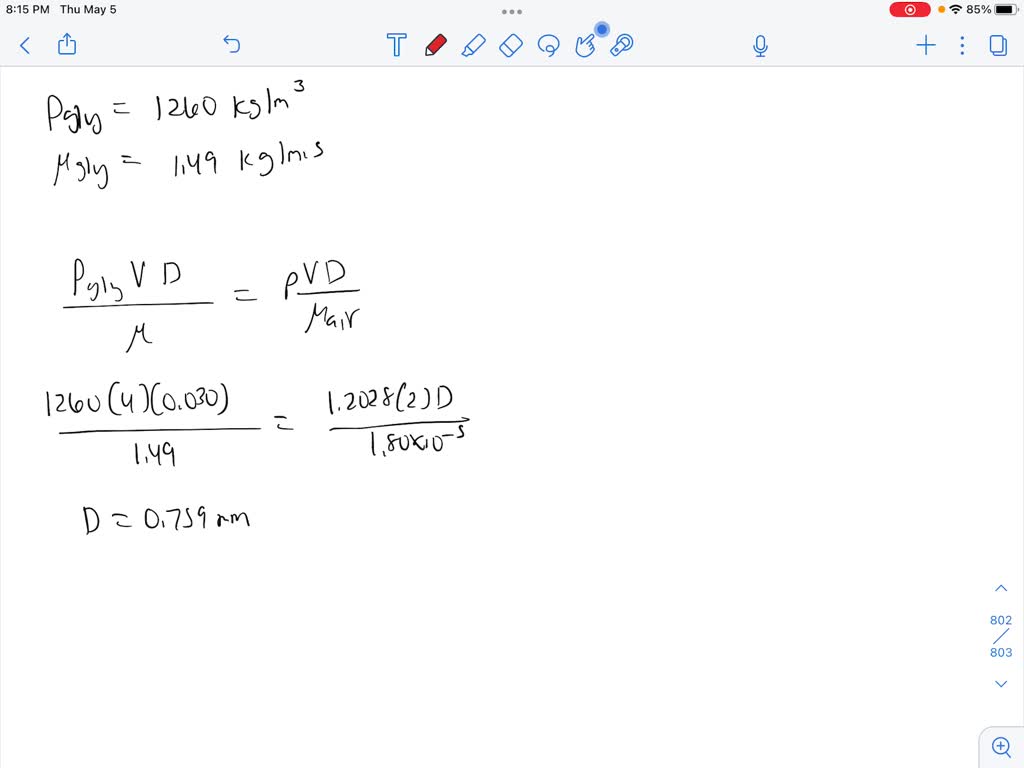 8:15 PM Thu May 5
85%
ρgly = 1260 kg/m³
μgly = 1.49 kg/m.s
ρgly V D / μ = ρVD / μair
1260(4)(0.030) / 1.49 = 1.2028(2)D / 1.80x10⁻⁵
D = 0.759 mm
802
803